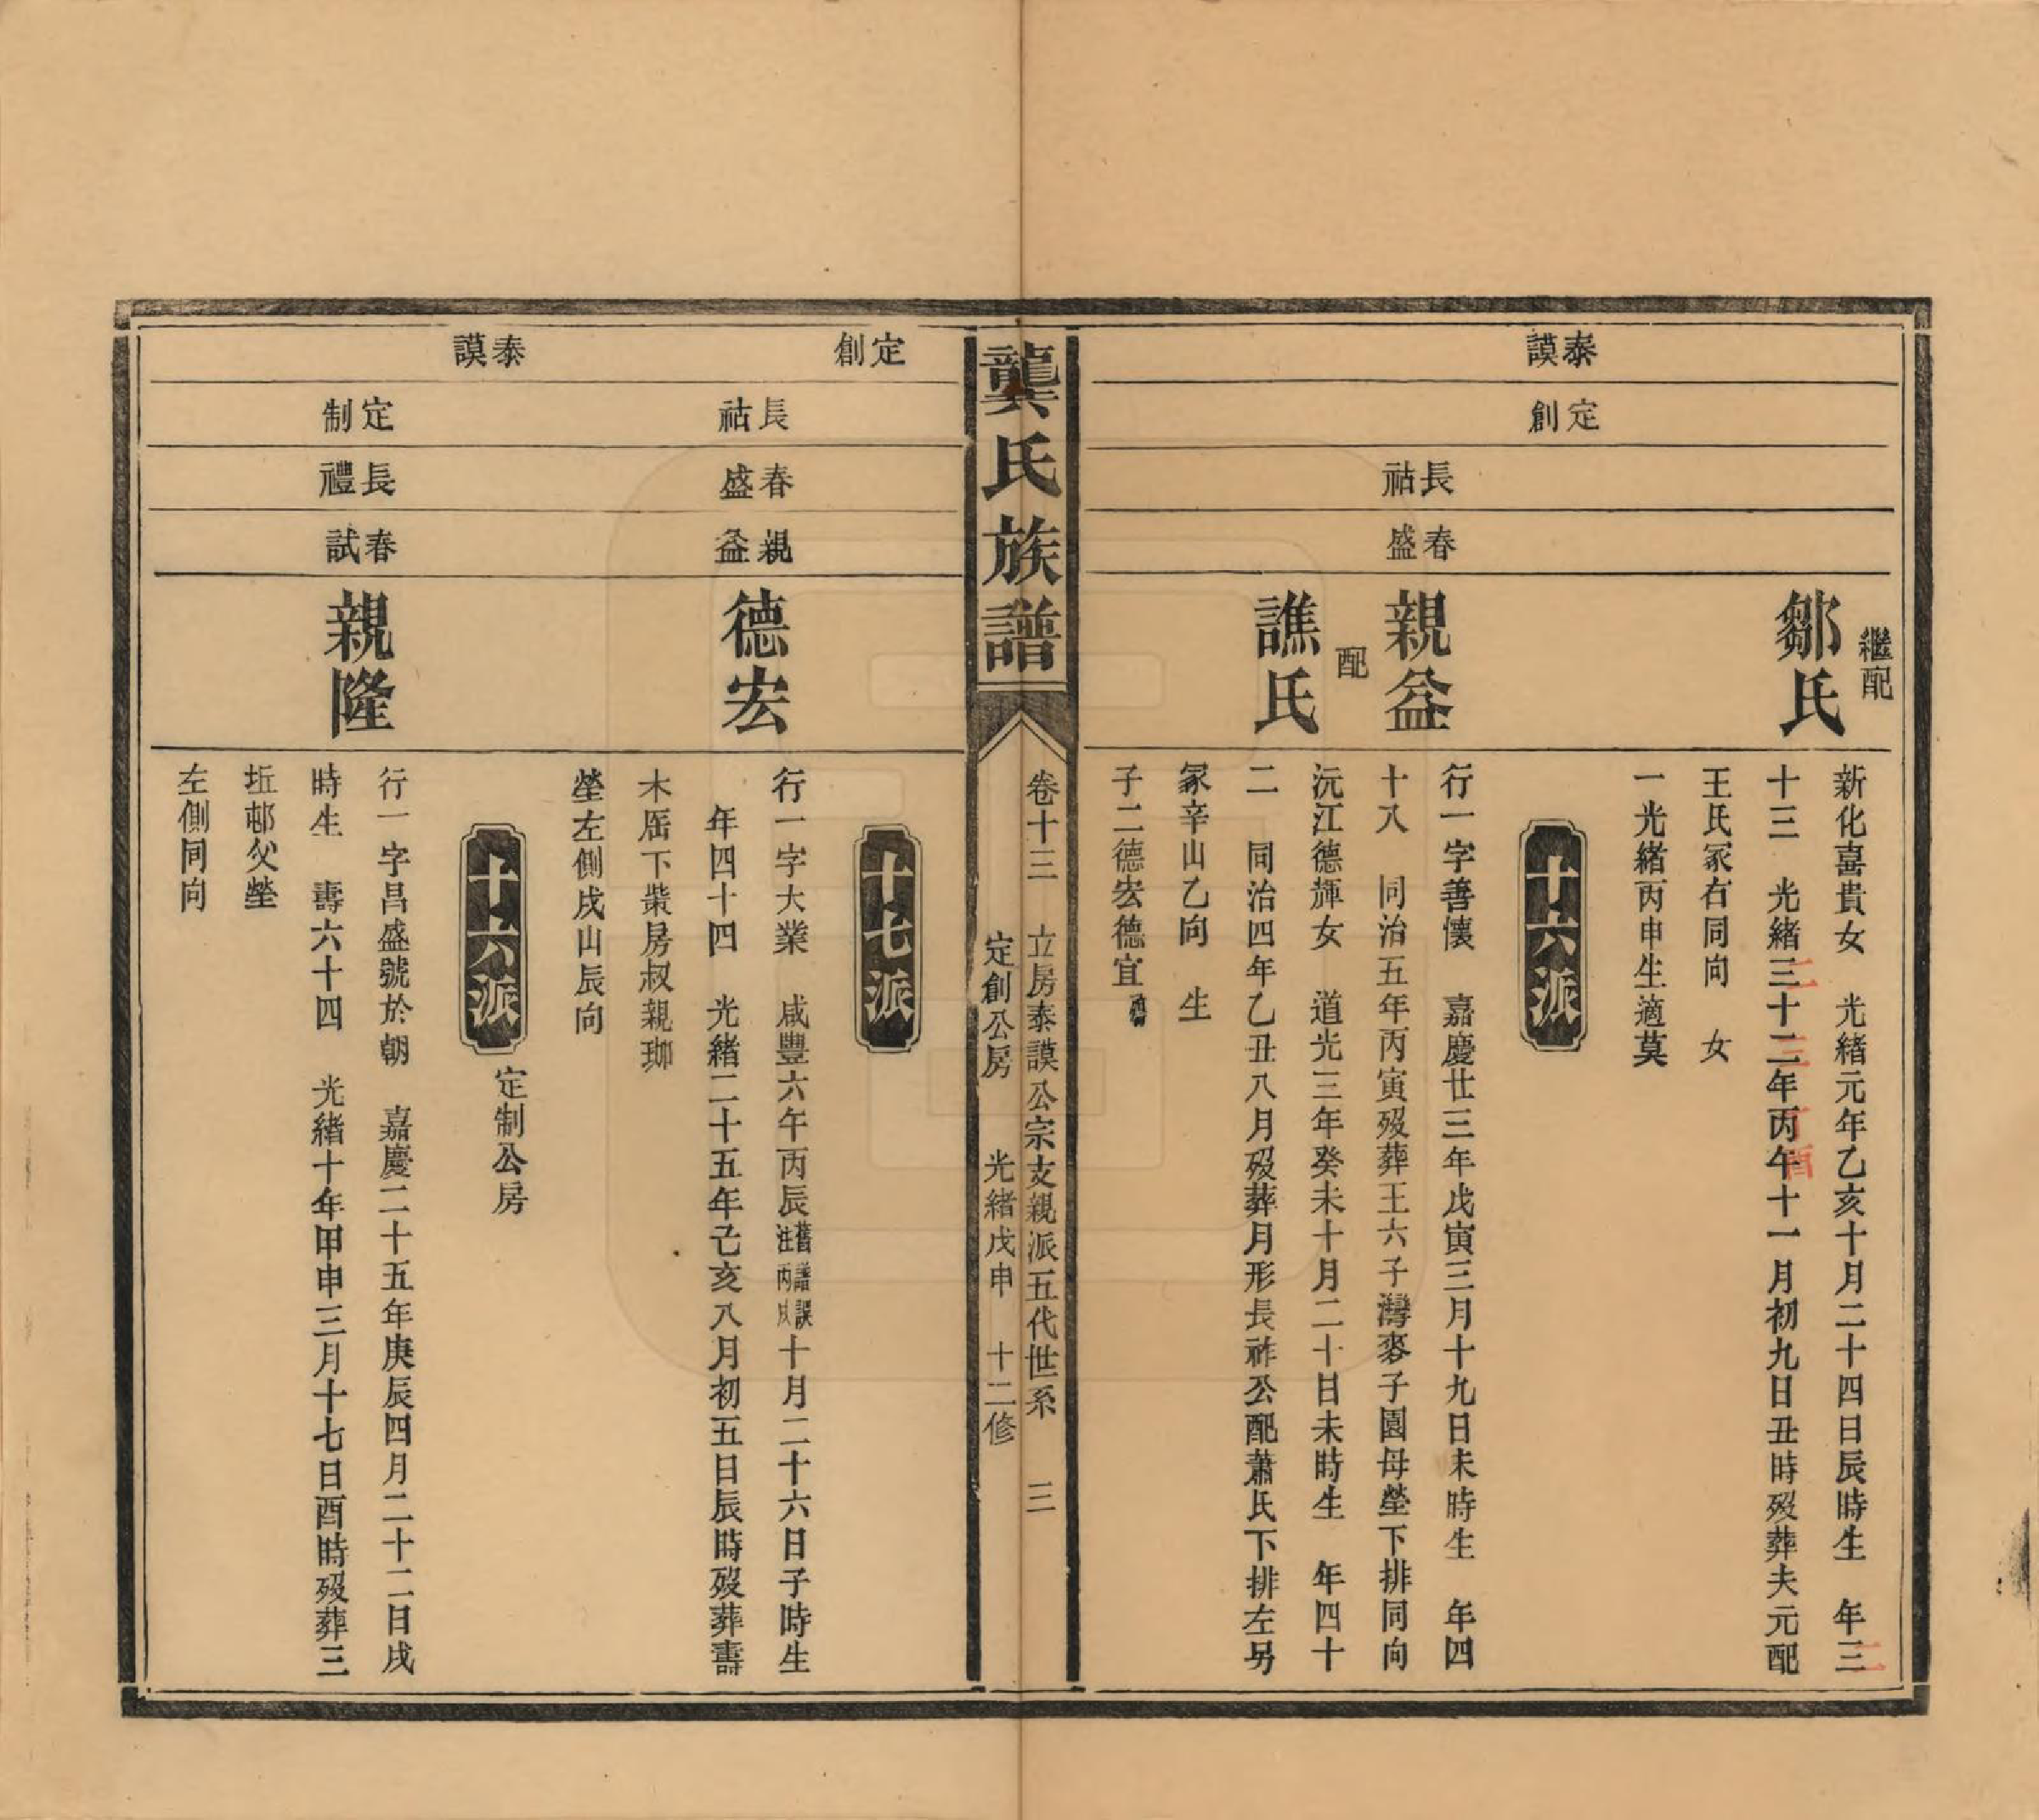 泰謨
定創
長祜
春盛
繼配
鄒氏
新化喜貴女 光緒元年乙亥十月二十四日辰時生 年三
二
十三 光緒三十二年丙午十一月初九日丑時歿葬夫元配
二 三 丁酉
王氏冢右同向 女
一光緒丙申生適莫
十六派
親益
行一字善懷 嘉慶廿三年戊寅三月十九日未時生 年四
十八 同治五年丙寅歿葬王六子灣麥子園母塋下排同向
配
譙氏
沅江德輝女 道光三年癸未十月二十日未時生 年四十
二 同治四年乙丑八月歿葬月形長祚公配蕭氏下排左另
冢辛山乙向 生
子二德宏德宜
龔氏族譜
卷十三 立房泰謨公宗支親派五代世系 三
定創公房 光緒戊申 十二修
定創
長祜
春盛
親益
十七派
德宏
行一字大業 咸豐六年丙辰舊譜誤注丙戌十月二十六日子時生
年四十四 光緒二十五年己亥八月初五日辰時歿葬壽
木厝下柴房叔親珋
塋左側戌山辰向
泰謨
定制
長禮
春試
十六派
定制公房
親隆
行一字昌盛號於朝 嘉慶二十五年庚辰四月二十二日戌
時生 壽六十四 光緒十年甲申三月十七日酉時歿葬三
坵邨父塋
左側同向